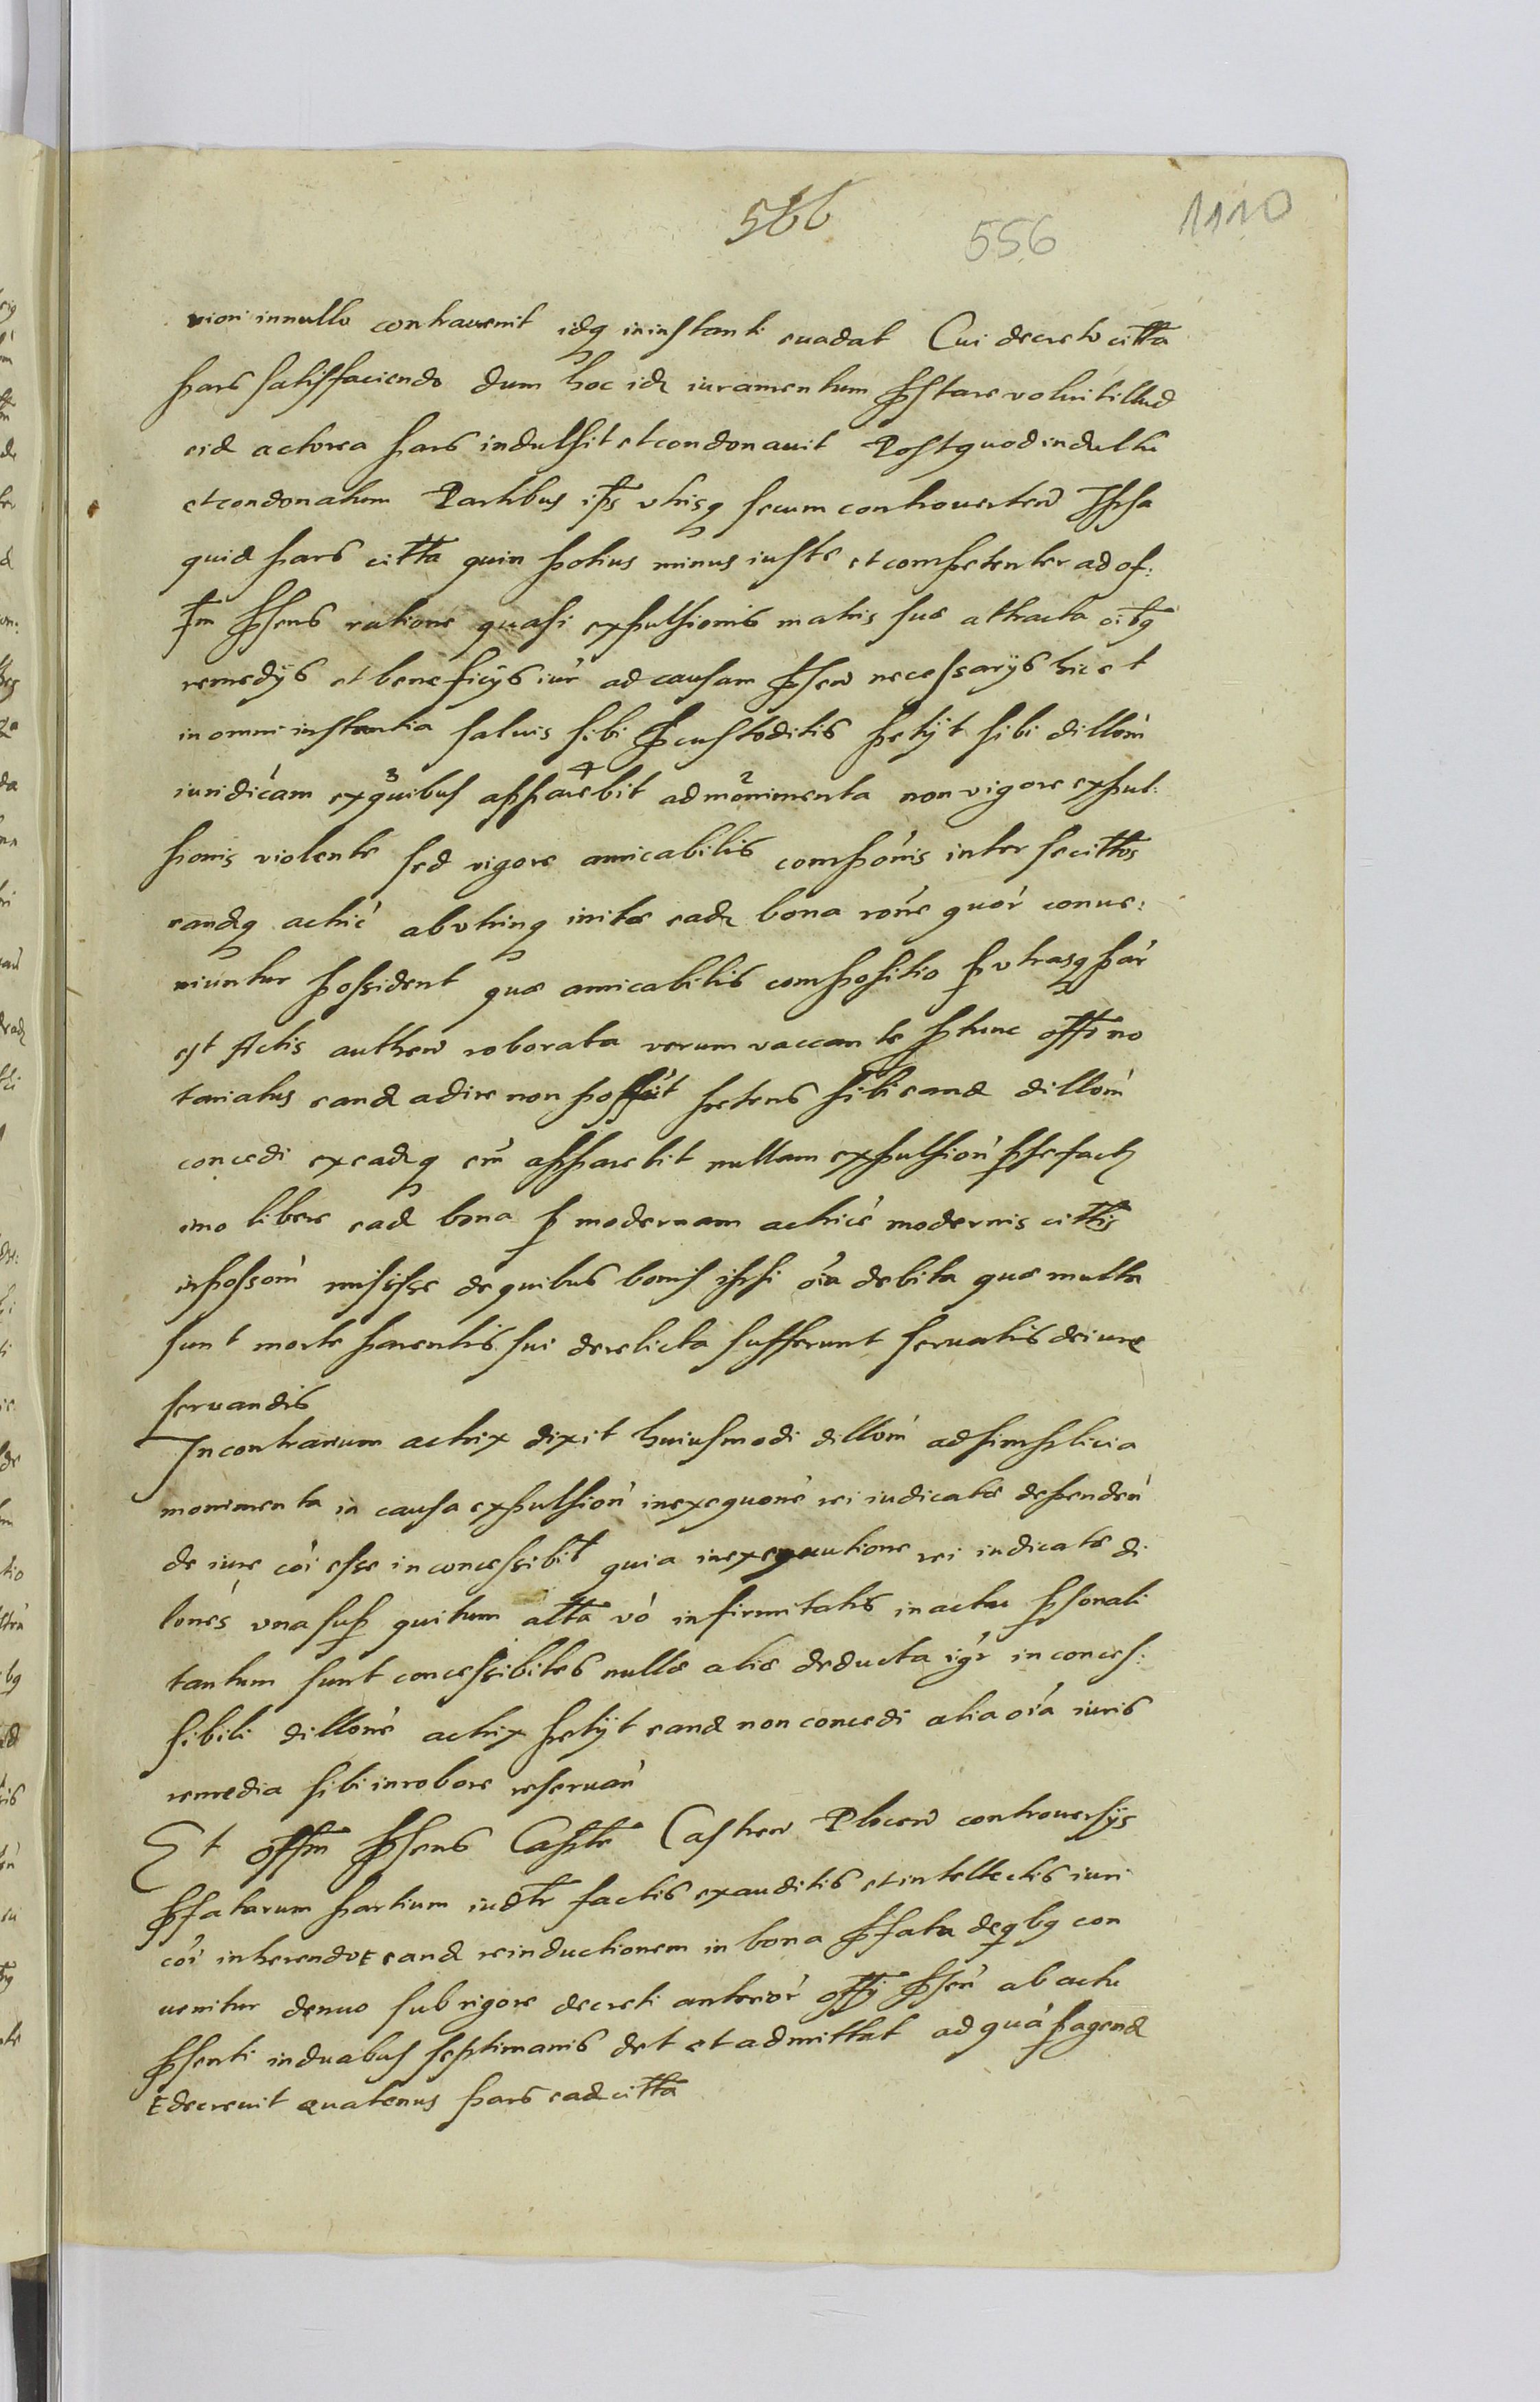 566 556 1110
nioni in nullo contravenit idq in instanti evadat Cui decreto citta
pars satisfaciendo dum hoc id iuramentum pstare voluit illud
eid actorea pars indulsit et condonavit Post quod indultu
et condonatum Partibus ips vtrisq secum controverten Ipsa
quid pars citta quin potius minus iuste et competenter ad of:
fm psens ratione quasi expulsionis matris suæ attracta oibq
remedÿs et beneficÿs iur ad causam psen necessarÿs hic et
in omni instantia salvis sibi pcustoditis petÿt sibi dillom
iuridicam ex quibus apparebit ad monimenta non vigore expul:
sionis violentæ sed vigore amicabilis componis inter se cittos
eandq actric ab vtrinq initæ ead bona rone quor conve:
niuntur possident quæ amicabilis compositio p vtrasq par
est Actis authen roborata verum vaccante ptunc offo no
tariatus eand adire non possut petens sibi eand dillom
concedi ex eadq em apparebit nullam expulsion pse fact
imo libere ead bona p modernam actrice modernis cittis
in possom misisse de quibus bonis ipsi oia debita quæ multa
sunt morte parentis sui derelicta sufferunt servatis de iure
servandis
In contrarium actrix dixit huiusmodi dillom ad simplicia
monimenta in causa expulsion in exequone rei iudicatæ dependen
de iure coi esse inconcessibil quia in executione rei iudicatæ di
lones vna sup quitum alta vo infirmitatis in actu psonali
tantum sunt concessibiles nullæ aliæ deducta igr inconces:
sibili dillone actrix petÿt eand non concedi alia oia iuris
remedia sibi in robore reservan
Et offm psens Capte Castren Plocen controversÿs
pfatarum partium iudtr factis exauditis et intellectis iuri
coi inherendo eand reinductionem in bona pfata de qbq con
venitur denuo sub rigore decreti anterior offÿ psen ab actu
psenti in duabus septimanis det et admittat ad qua pagend
decrevit quatenus pars ead citta